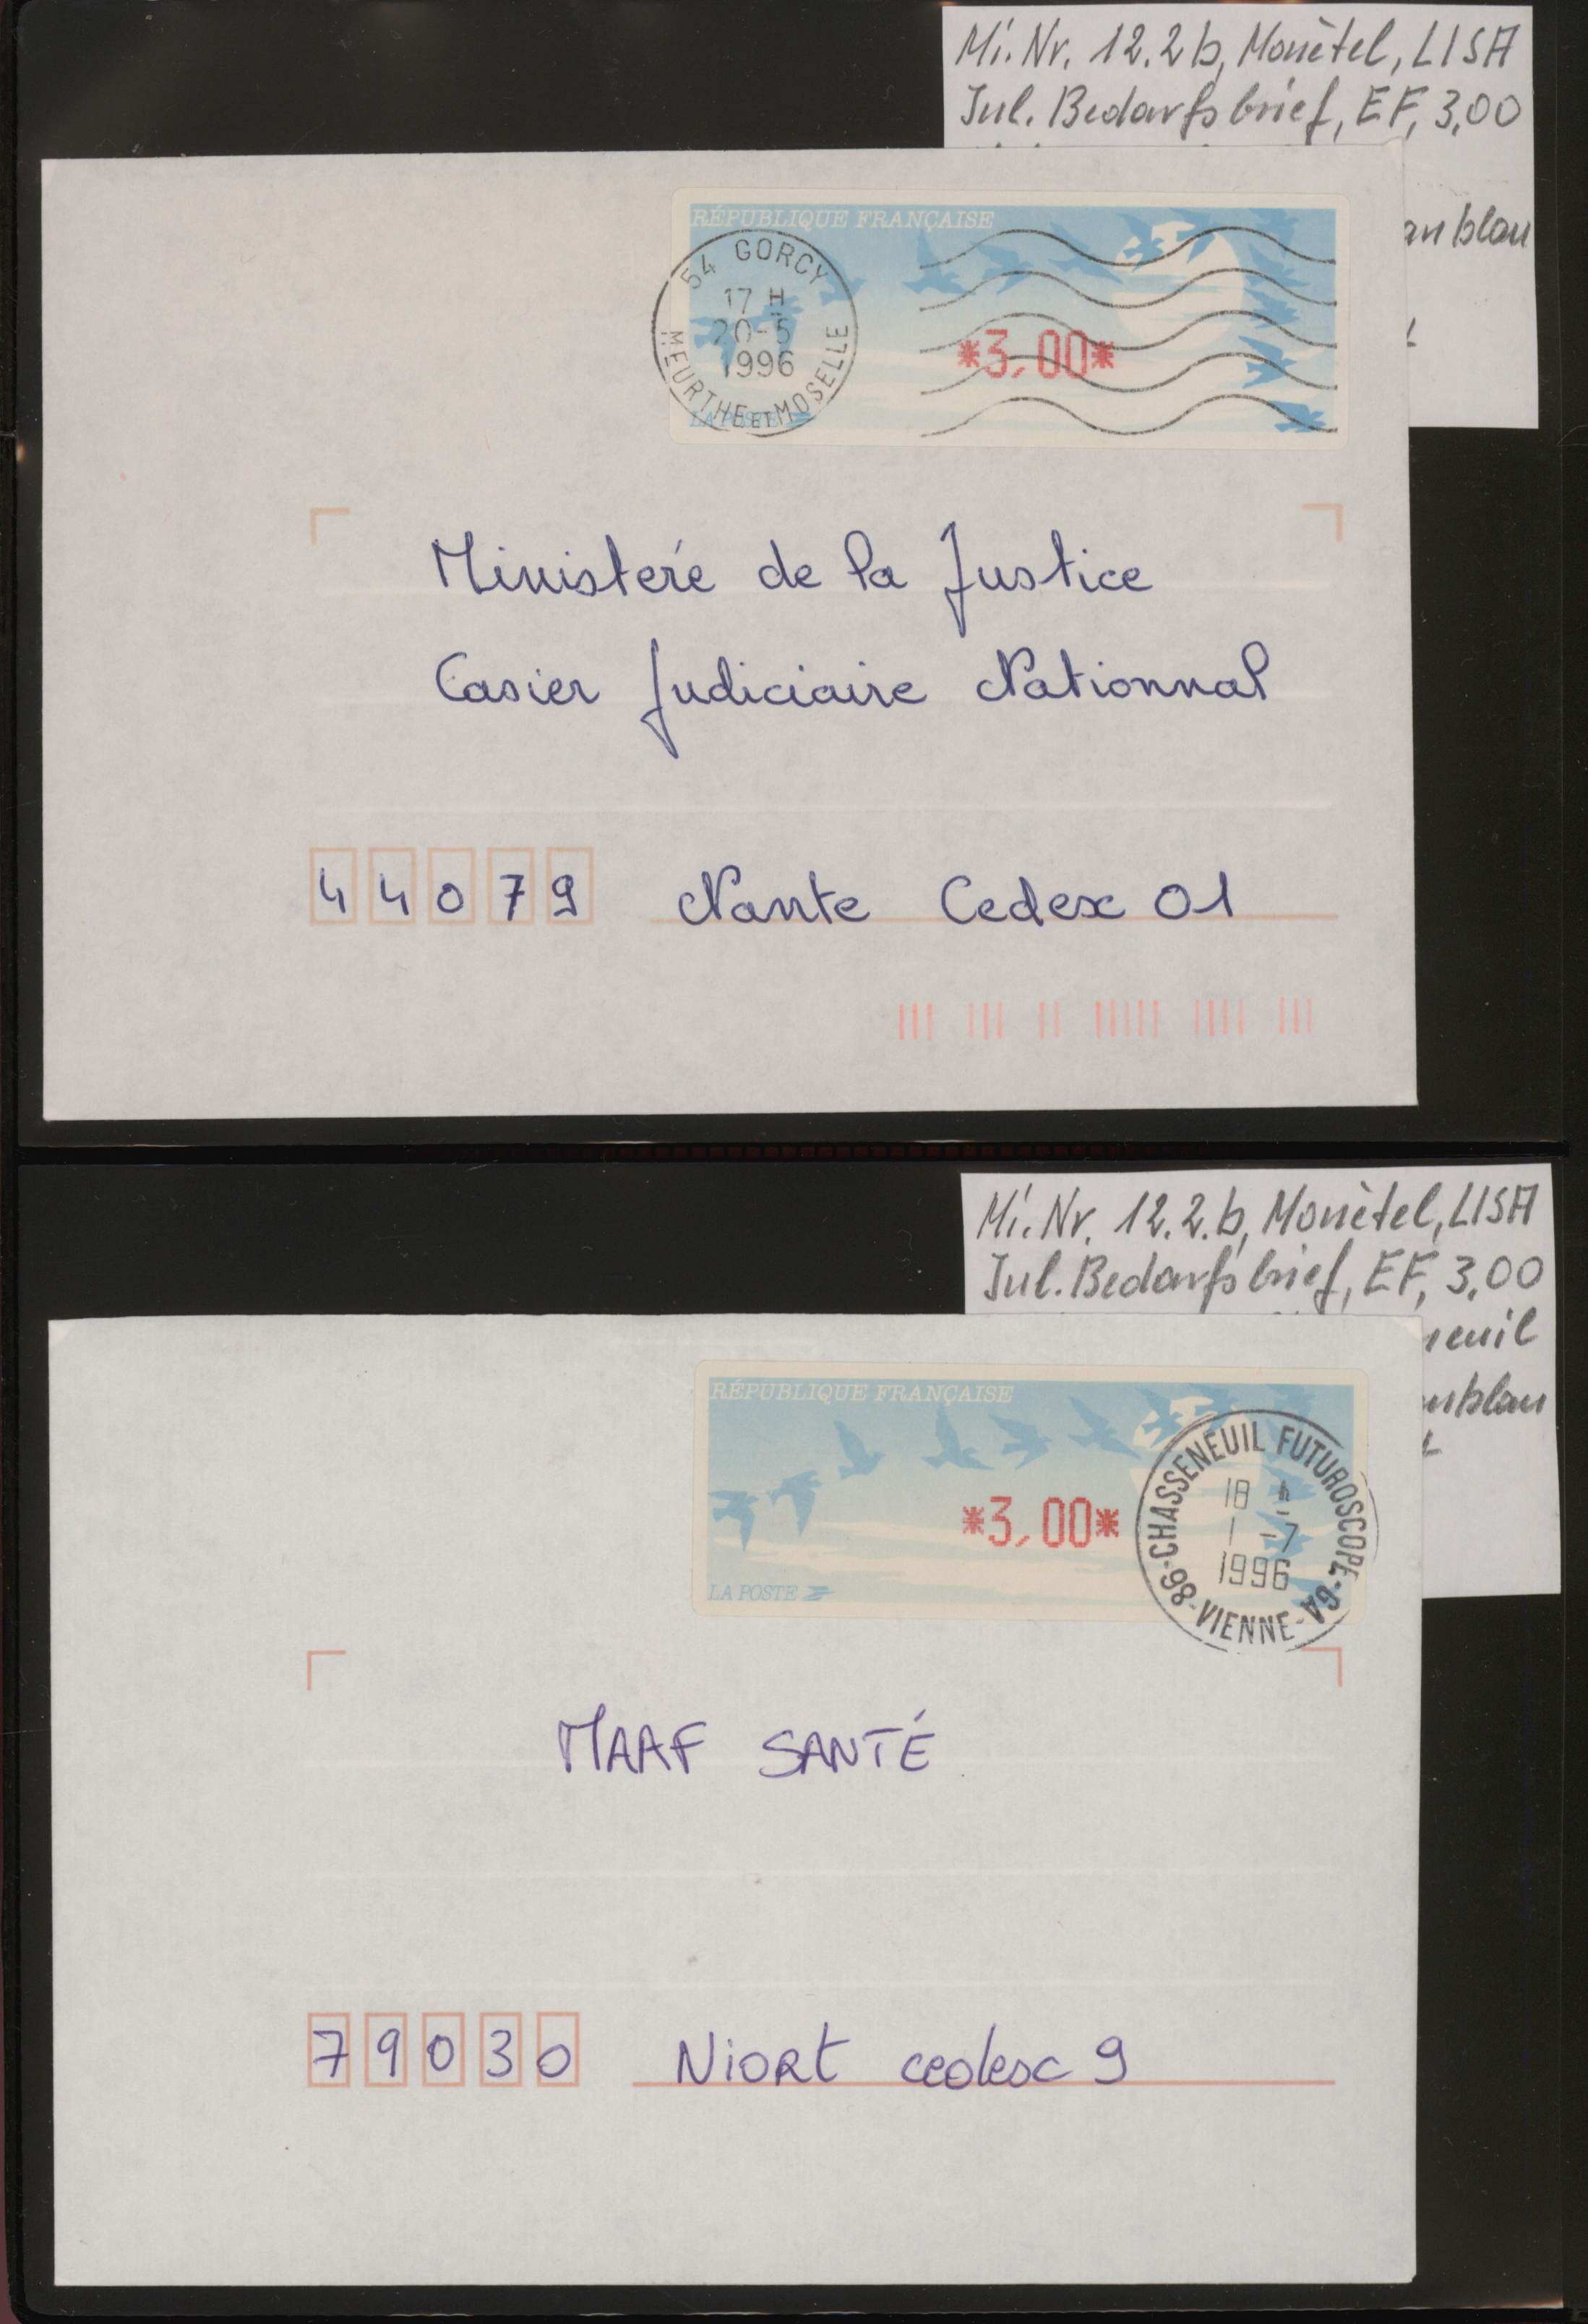 Mi. Nr. 12.2 b, Monètel, LISA
Inl. Bedarfsbrief, EF, 3,00
blau
RÉPUBLIQUE FRANÇAISE
54 GORCY
17 H
20-5
1996
MEURTHE ET MOSELLE
*3,00*
LA POSTE
Ministeré de la Justice
Casier Judiciaire Nationnal
44079 Nante Cedex 01
Mi. Nr. 12.2.b, Monètel, LISA
Inl. Bedarfsbrief, EF, 3,00
neuil
blau
RÉPUBLIQUE FRANÇAISE
CHASSENEUIL FUTUROSCOPE-GA
18 H
1-7
1996
86-VIENNE-
*3,00*
LA POSTE
MAAF SANTÉ
79030 NIORT cedex 9